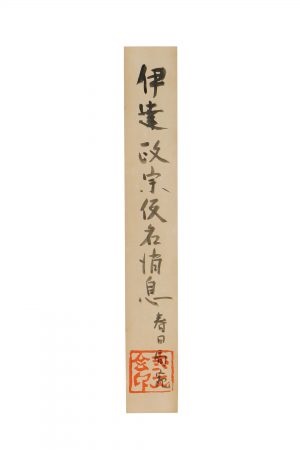 伊達政宗仮名消息 春日局宛